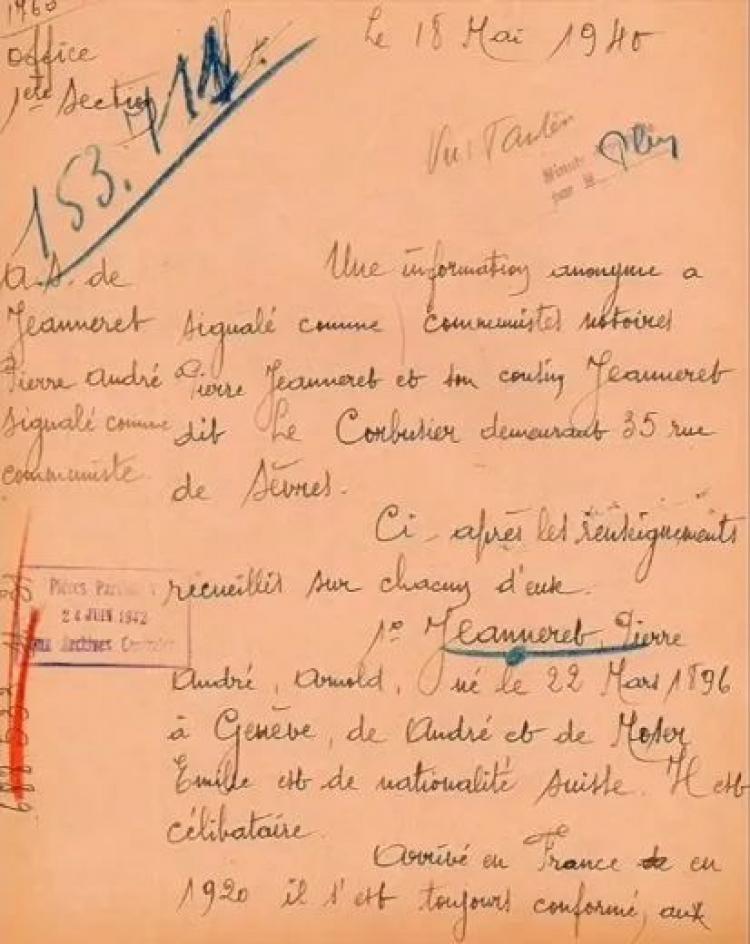 1760
Office
1ère Section
153.711
Le 18 Mai 1940
Vu: 
par M.
A.S. de
Jeanneret
Pierre André
signalé comme
communiste.
Une information anonyme a
signalé comme communistes notoires
Pierre Jeanneret et son cousin Jeanneret
dit Le Corbusier demeurant 35 rue
de Sèvres.
Ci-après les renseignements
recueillis sur chacun d'eux.
1º Jeanneret, Pierre
André, Arnold, né le 22 Mars 1896
à Genève, de André et de Moser
Emilie est de nationalité suisse. Il est
célibataire.
Arrivé en France en
1920 il s'est toujours conformé, aux
24 JUIN 1942
aux Archives Centrales